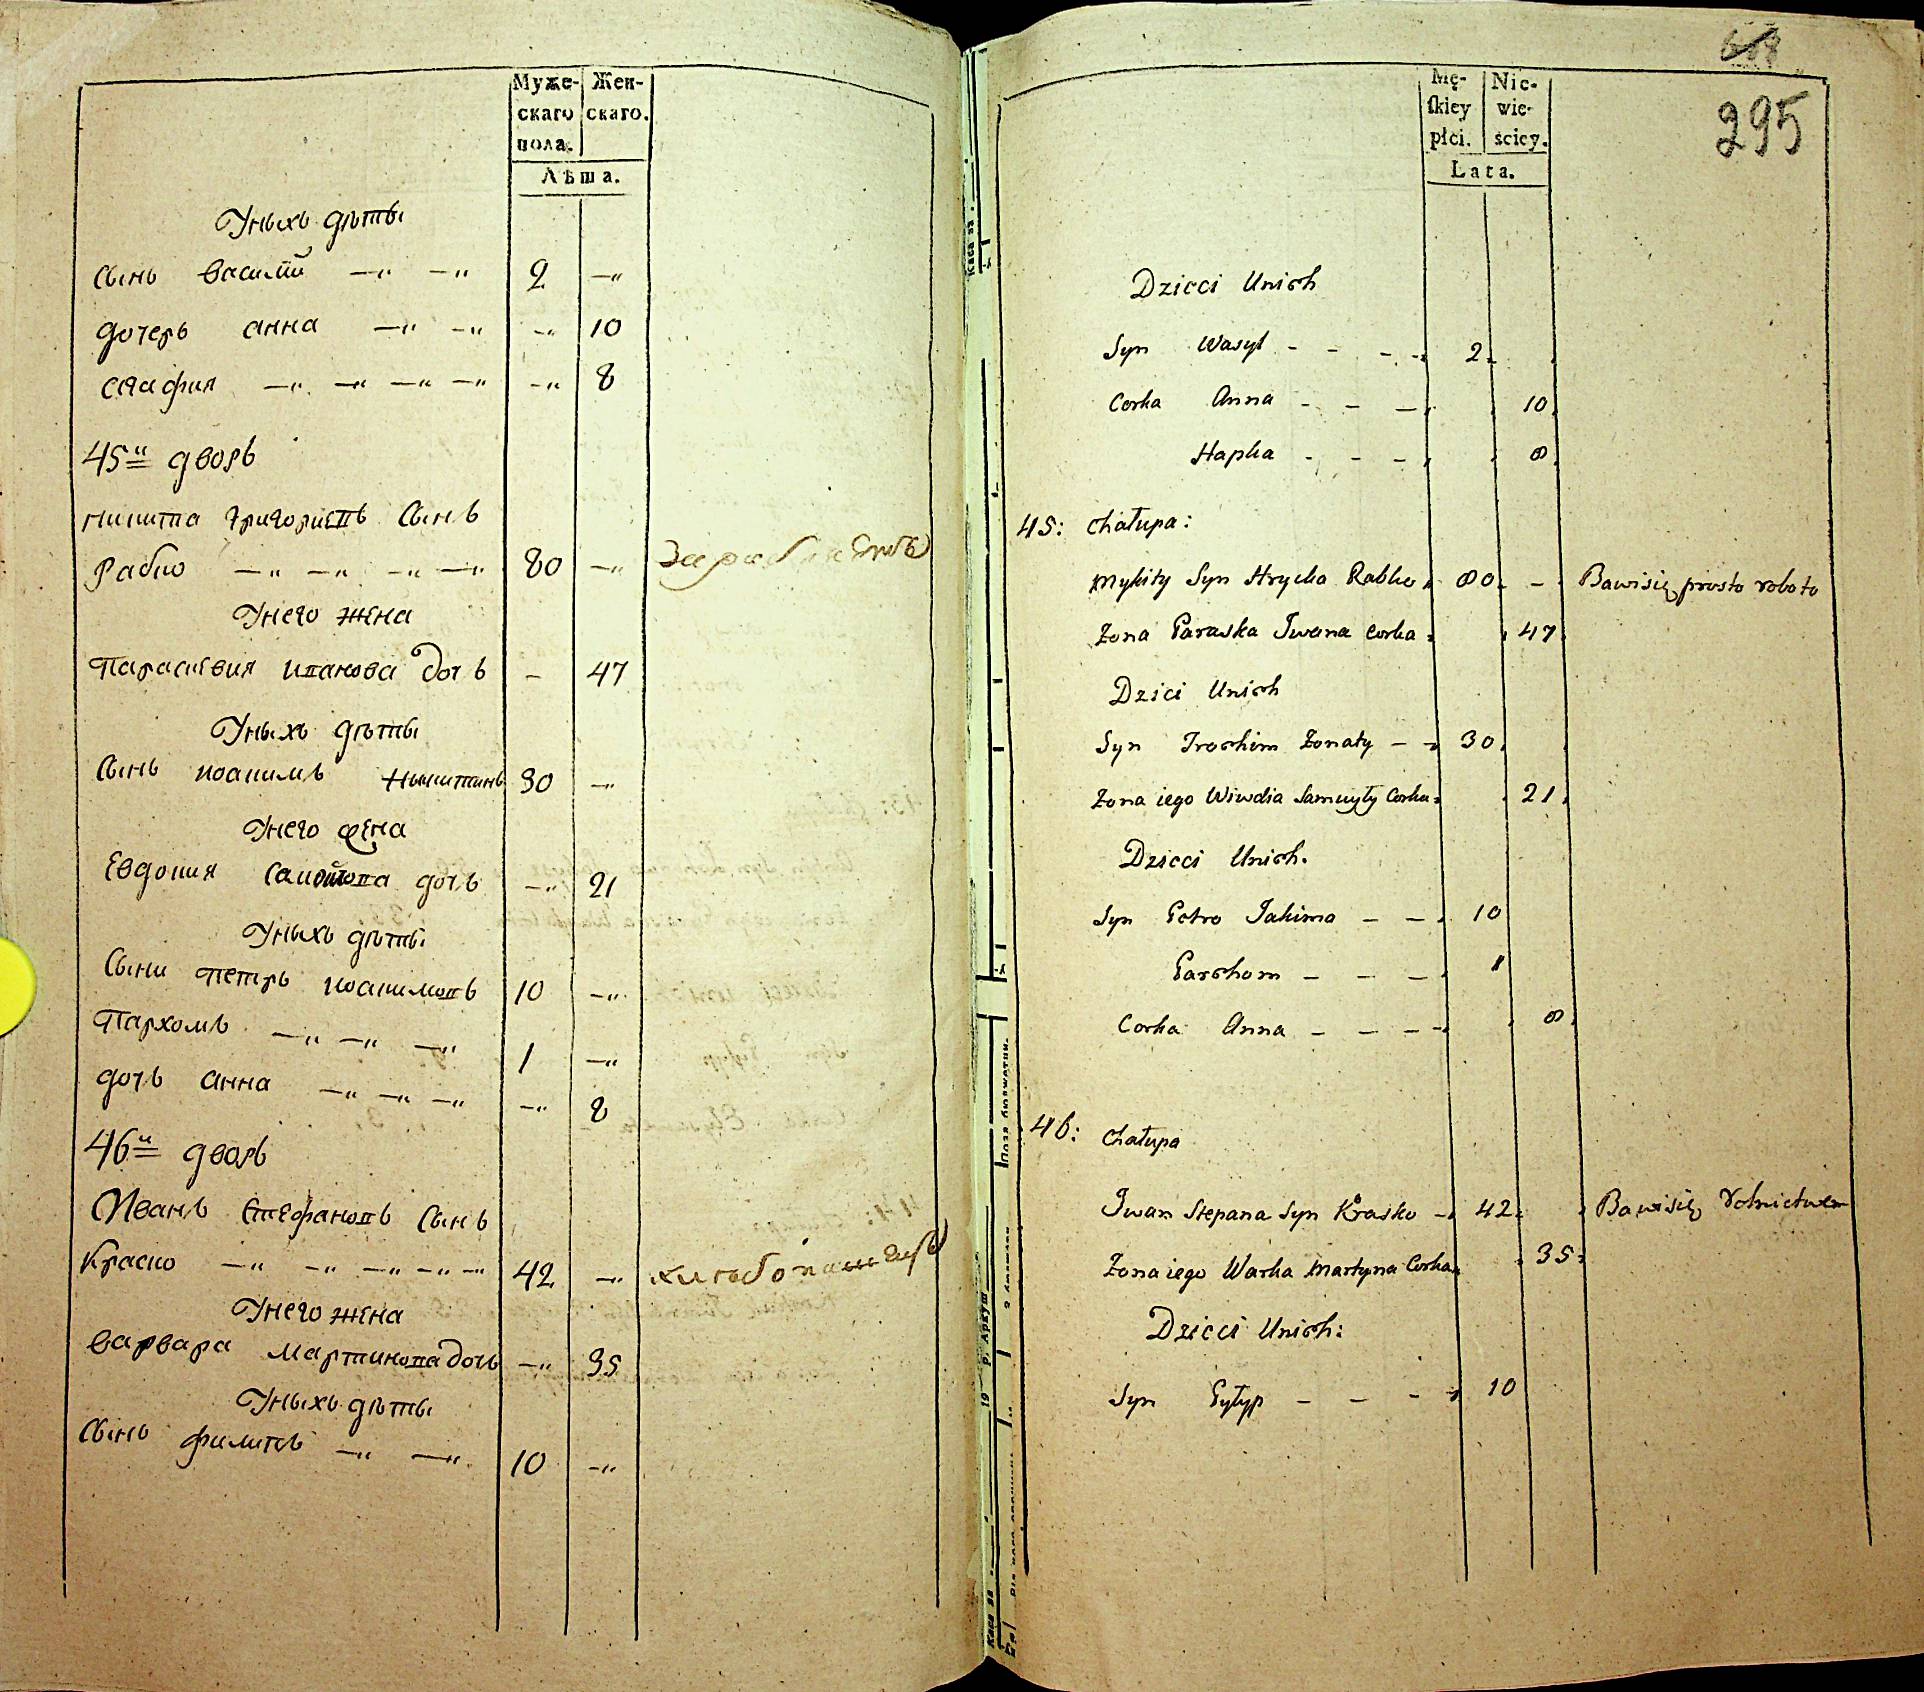 Муже-
скаго
пола.
Жен-
скаго.
Лѣта.
Уныхъ дѣты
Сынъ василий —„ —„ 2 —„
дочерь анна —„ —„ —„ 10
—„ —„ —„ —„ —„ 8
45й дворъ
никита григориевъ Сынъ
Рабко —„ —„ —„ —„ 80 —„
Унего жена
Параскевия иванова дочь – 47
Уныхъ дѣты
Сынъ иоакимъ никитинъ 30 —„
Унего жена
Евдокия дочь —„ 21
Уныхъ дѣты
Сыни петръ иоакимовъ 10 —„
Пархомъ —„ —„ —„ 1 —„
дочь анна —„ —„ —„ —„ 8
46й дворъ
Иванъ Стефановъ Сынъ
Краско —„ —„ —„ —„ —„ 42 —„
Унего жена
варвара мартинова дочь —„ 35
Уныхъ дѣты
Сынъ филипъ —„ —„ 10 —„
295
Mę-
skiey
płci.
Nie-
wie-
ściey.
Lata.
Dzieci Unich
Syn Wasyl - - - - 2
Corka Anna - - - 10
Hapka - - - 8
45: Chałupa:
Mykity Syn Hrycka Rabko 80 - Bawisię prosto roboto
Zona Paraska Iwana Corka 47
Dzici Unich
Syn Zonaty - - 30
Zona iego Wiwdia Samuyły Corka 21
Dzieci Unich.
Syn Petro Jakima - - 10
Parchom - - - 1
Corka Anna - - - - 8
46: Chałupa
Iwan Stepana Syn Krasko - 42 Bawisię Rolnictwem
Zona iego Warka Martyna Corka 35
Dzieci Unich:
Syn Pyłyp - - - - 10